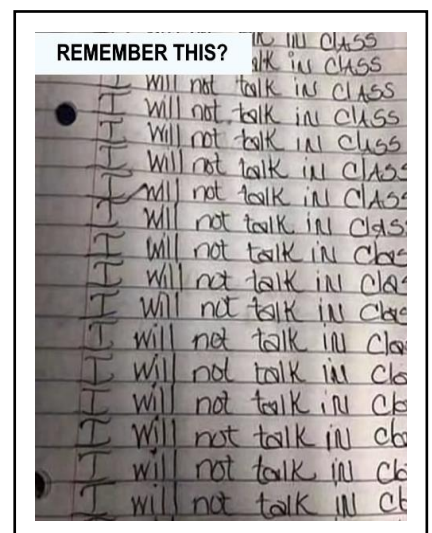 REMEMBER THIS?
IN CLASS
talk in CLASS
I will not talk in CLASS
I will not talk in CLASS
I will not talk in CLASS
I will not talk in CLASS
I will not talk in CLASS
I will not talk in CLAS
I will not talk in Clas
I will not talk in Clas
I will not talk in Clas
I will not talk in Clas
I will not talk in Cla
I will not talk in Cla
I will not talk in Cla
I will not talk in Cla
I will not talk in Cl